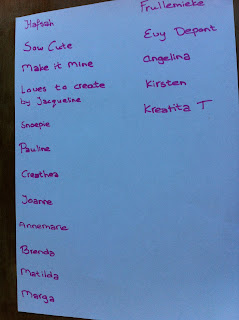 Hafsah
Sow Cute
Make it Mine
Loves to create
by Jacqueline
Snoepie
Pauline
Creathea
Joanne
Annemarie
Brenda
Matilda
Marga
Frullemieke
Evy Depont
Angelina
Kirsten
Kreatita T